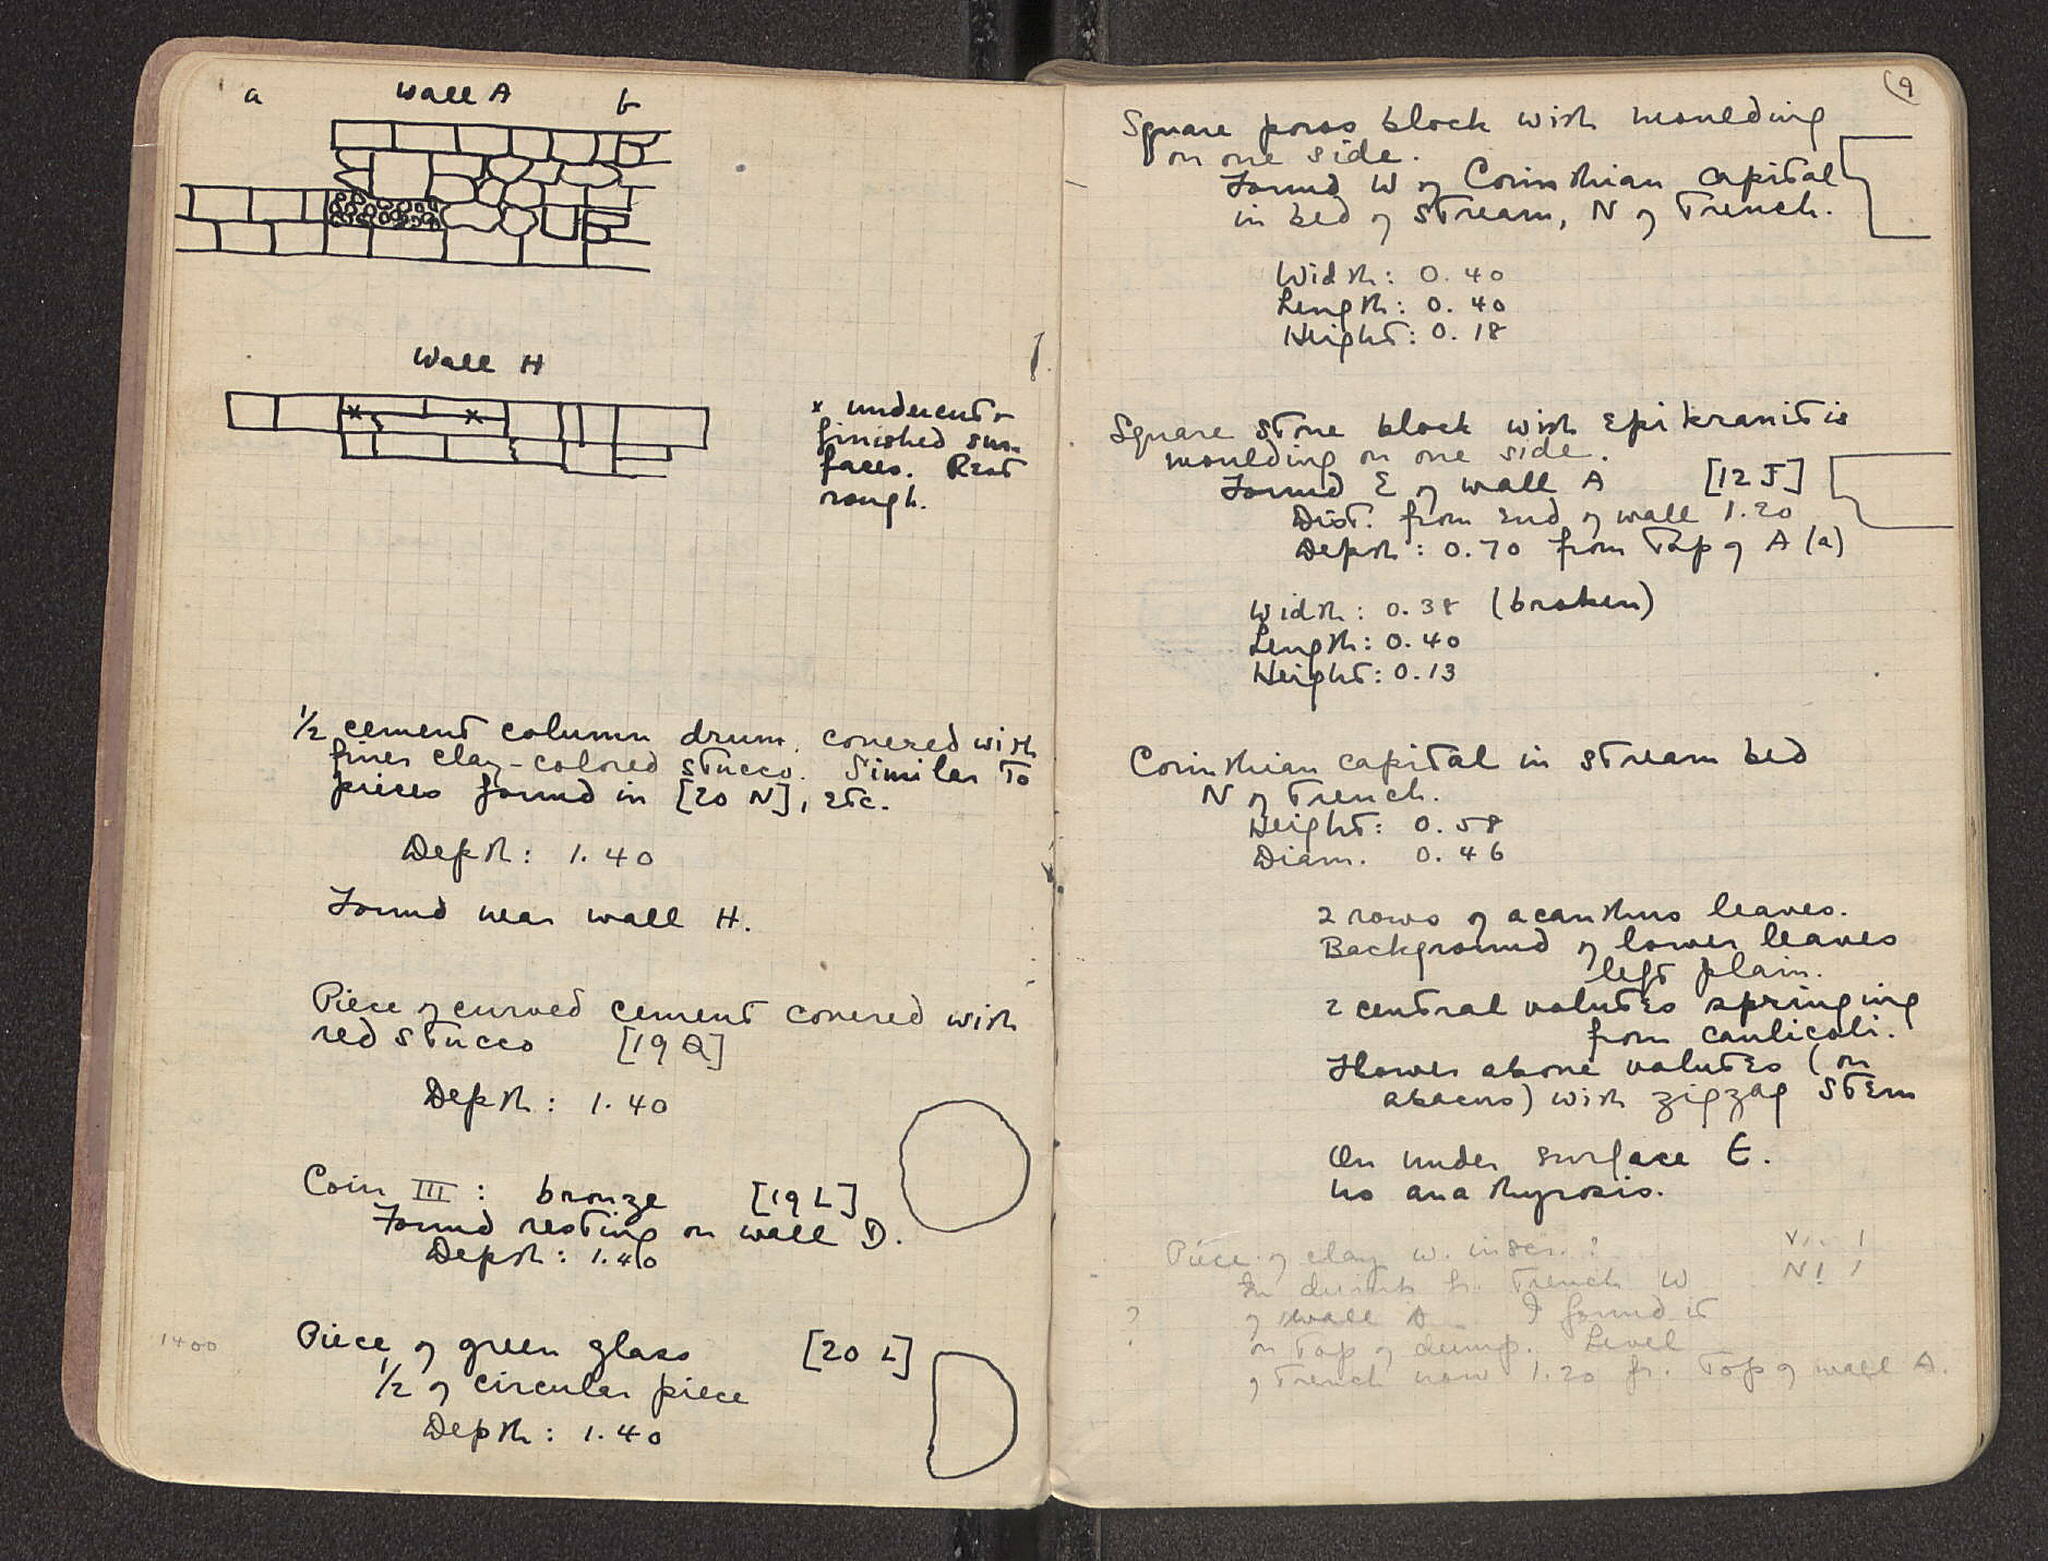 a Wall A b
Wall H
x undercut +
finished sur-
faces. Rest
rough.
1/2 cement column drum, covered with
finer clay-colored stucco. Similar to
pieces found in [20 N], etc.
Depth: 1.40
Found near wall H.
Piece of curved cement covered with
red stucco [19 Q]
Depth: 1.40
Coin III: bronze [19 L]
Found resting on wall D.
Depth: 1.40
1400
Piece of green glass [20 L]
1/2 of circular piece
Depth: 1.40
9
Square poros block with moulding
on one side.
Found W of Corinthian capital
in bed of stream, N of Trench.
Width: 0.40
Length: 0.40
Height: 0.18
Square stone block with epikranitis
moulding on one side.
Found E of wall A [12 J]
Dist. from end of wall 1.20
Depth: 0.70 from Top of A (a)
Width: 0.38 (broken)
Length: 0.40
Height: 0.13
Corinthian capital in stream bed
N of Trench.
Height: 0.58
Diam. 0.46
2 rows of acanthus leaves.
Background of lower leaves
left plain.
2 central volutes springing
from caulicoli.
Flower above volutes (on
abacus) with zigzag stem
On under surface E.
No anathyrosis.
Piece of clay w. inscr. ?
In dump fr. Trench W
? of wall A I found it
on Top of dump. Level
of Trench now 1.20 fr. Top of wall A.